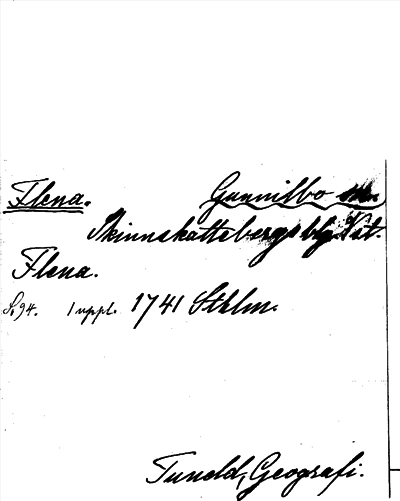 Flena. Gunnilbo sn.
Skinnskattebergs bg. Vstl.
Flena.
S. 94. 1 uppl. 1741 Sthlm.
Tuneld, Geografi.